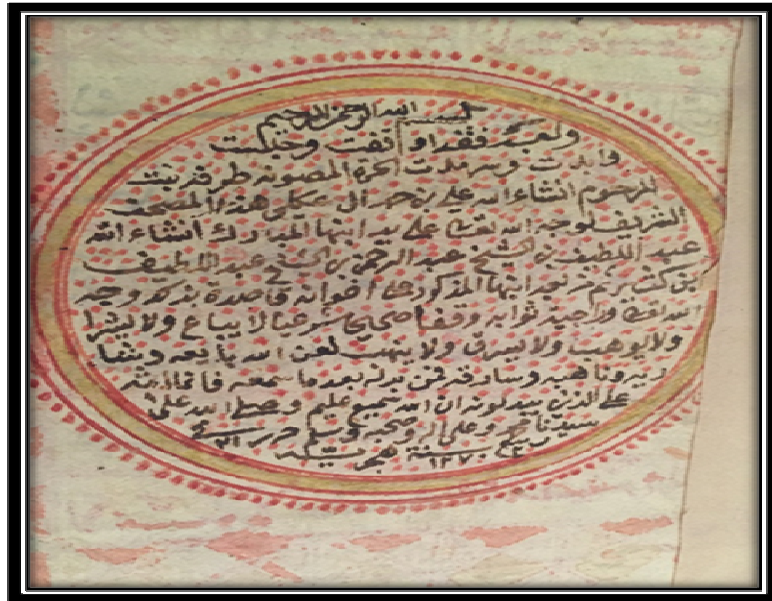 بسم الله الرحمن الرحيم
وبعد فقد اوقفت وحبست
وابدت وسبلت الحرة المصونه طرفه بنت
المرحوم انشاء الله علي بن حمد ال عكلي هذا المصحف
الشريف لوجه الله تعالى على يد ابنها المبارك انشاء الله
عبد اللطيف بن الشيخ عبد الرحمن بن الشيخ عبد اللطيف
ثم من بعد ابنها المذكور على اخوانه قاصدة بذلك وجه
الله تعالى وراجية ثوابه وقفا صحيحا شرعيا لا يباع ولا يشرا
ولا يوهب ولا يسرق ولا ينهب لعن الله بايعه ومشتا
ريه وناهبه وسارقه فمن بدله بعد ما سمعه فانما اثمه
على الذين يبدلونه ان الله سميع عليم وصلى الله على
سيدنا محمد وعلى اله وصحبه وسلم حرر
ربيع سنة ١٢٧٠ هجريه